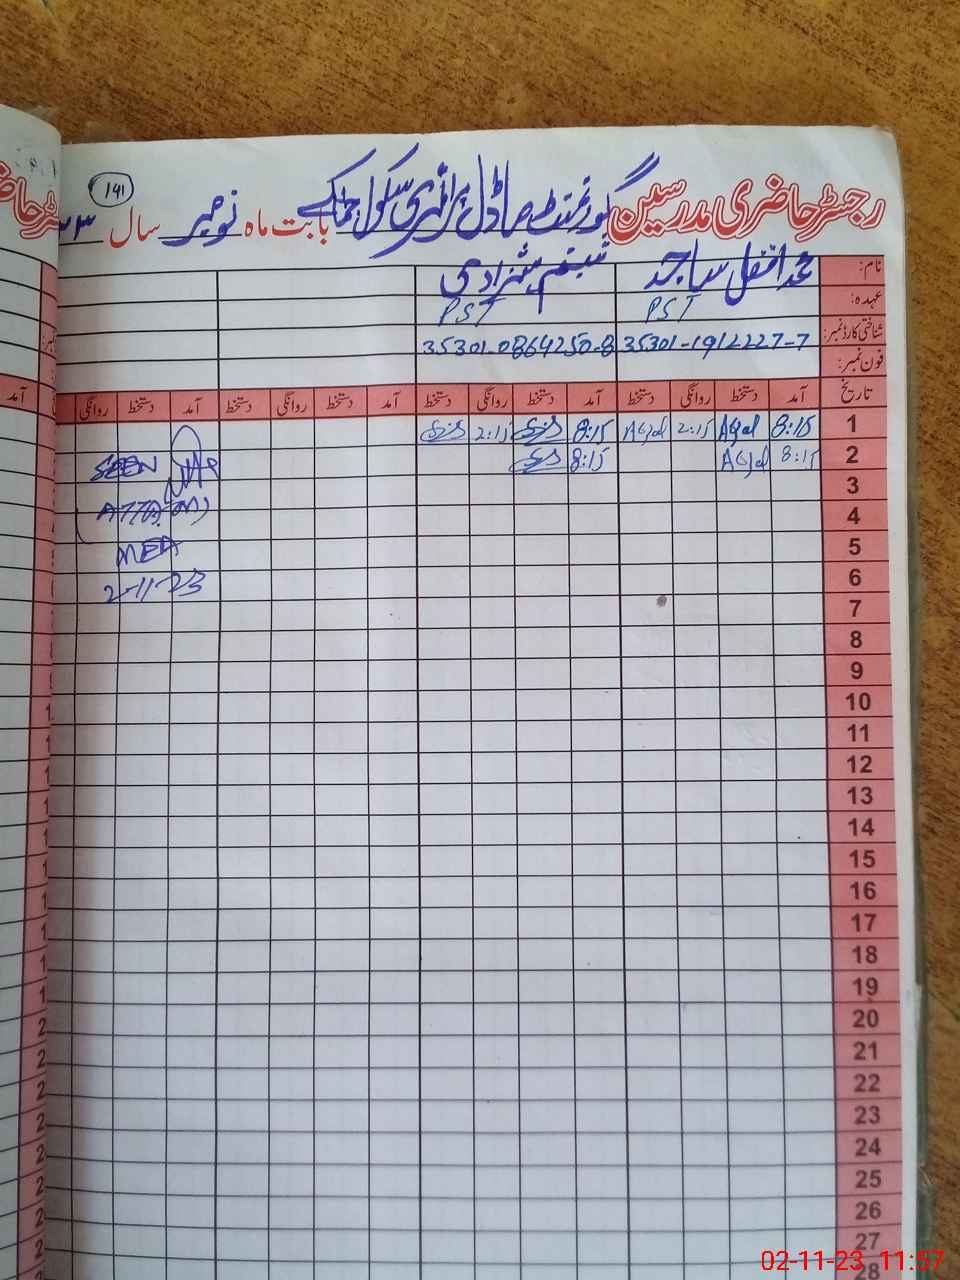 141
رجسٹر حاضری مدرسین گورنمنٹ ماڈل پرائمری سکول بابت ماہ نومبر سال ۲۳
نام: محمد افضل ساجد شبنم شہزادی
عہدہ: PST PST
شناختی کارڈ نمبر: 35301-1912227-7 35301-0864250-8
فون نمبر:
تاریخ آمد دستخط روانگی دستخط آمد دستخط روانگی دستخط آمد دستخط روانگی دستخط آمد دستخط روانگی
1 8:15 Afzal 2:15 Afzal 8:15 2:15
2 8:15 Afzal 8:15 SEEN
3
4
5 MEA
6 2-11-23
7
8
9
10
11
12
13
14
15
16
17
18
19
20
21
22
23
24
25
26
27
28
02-11-23 11:57